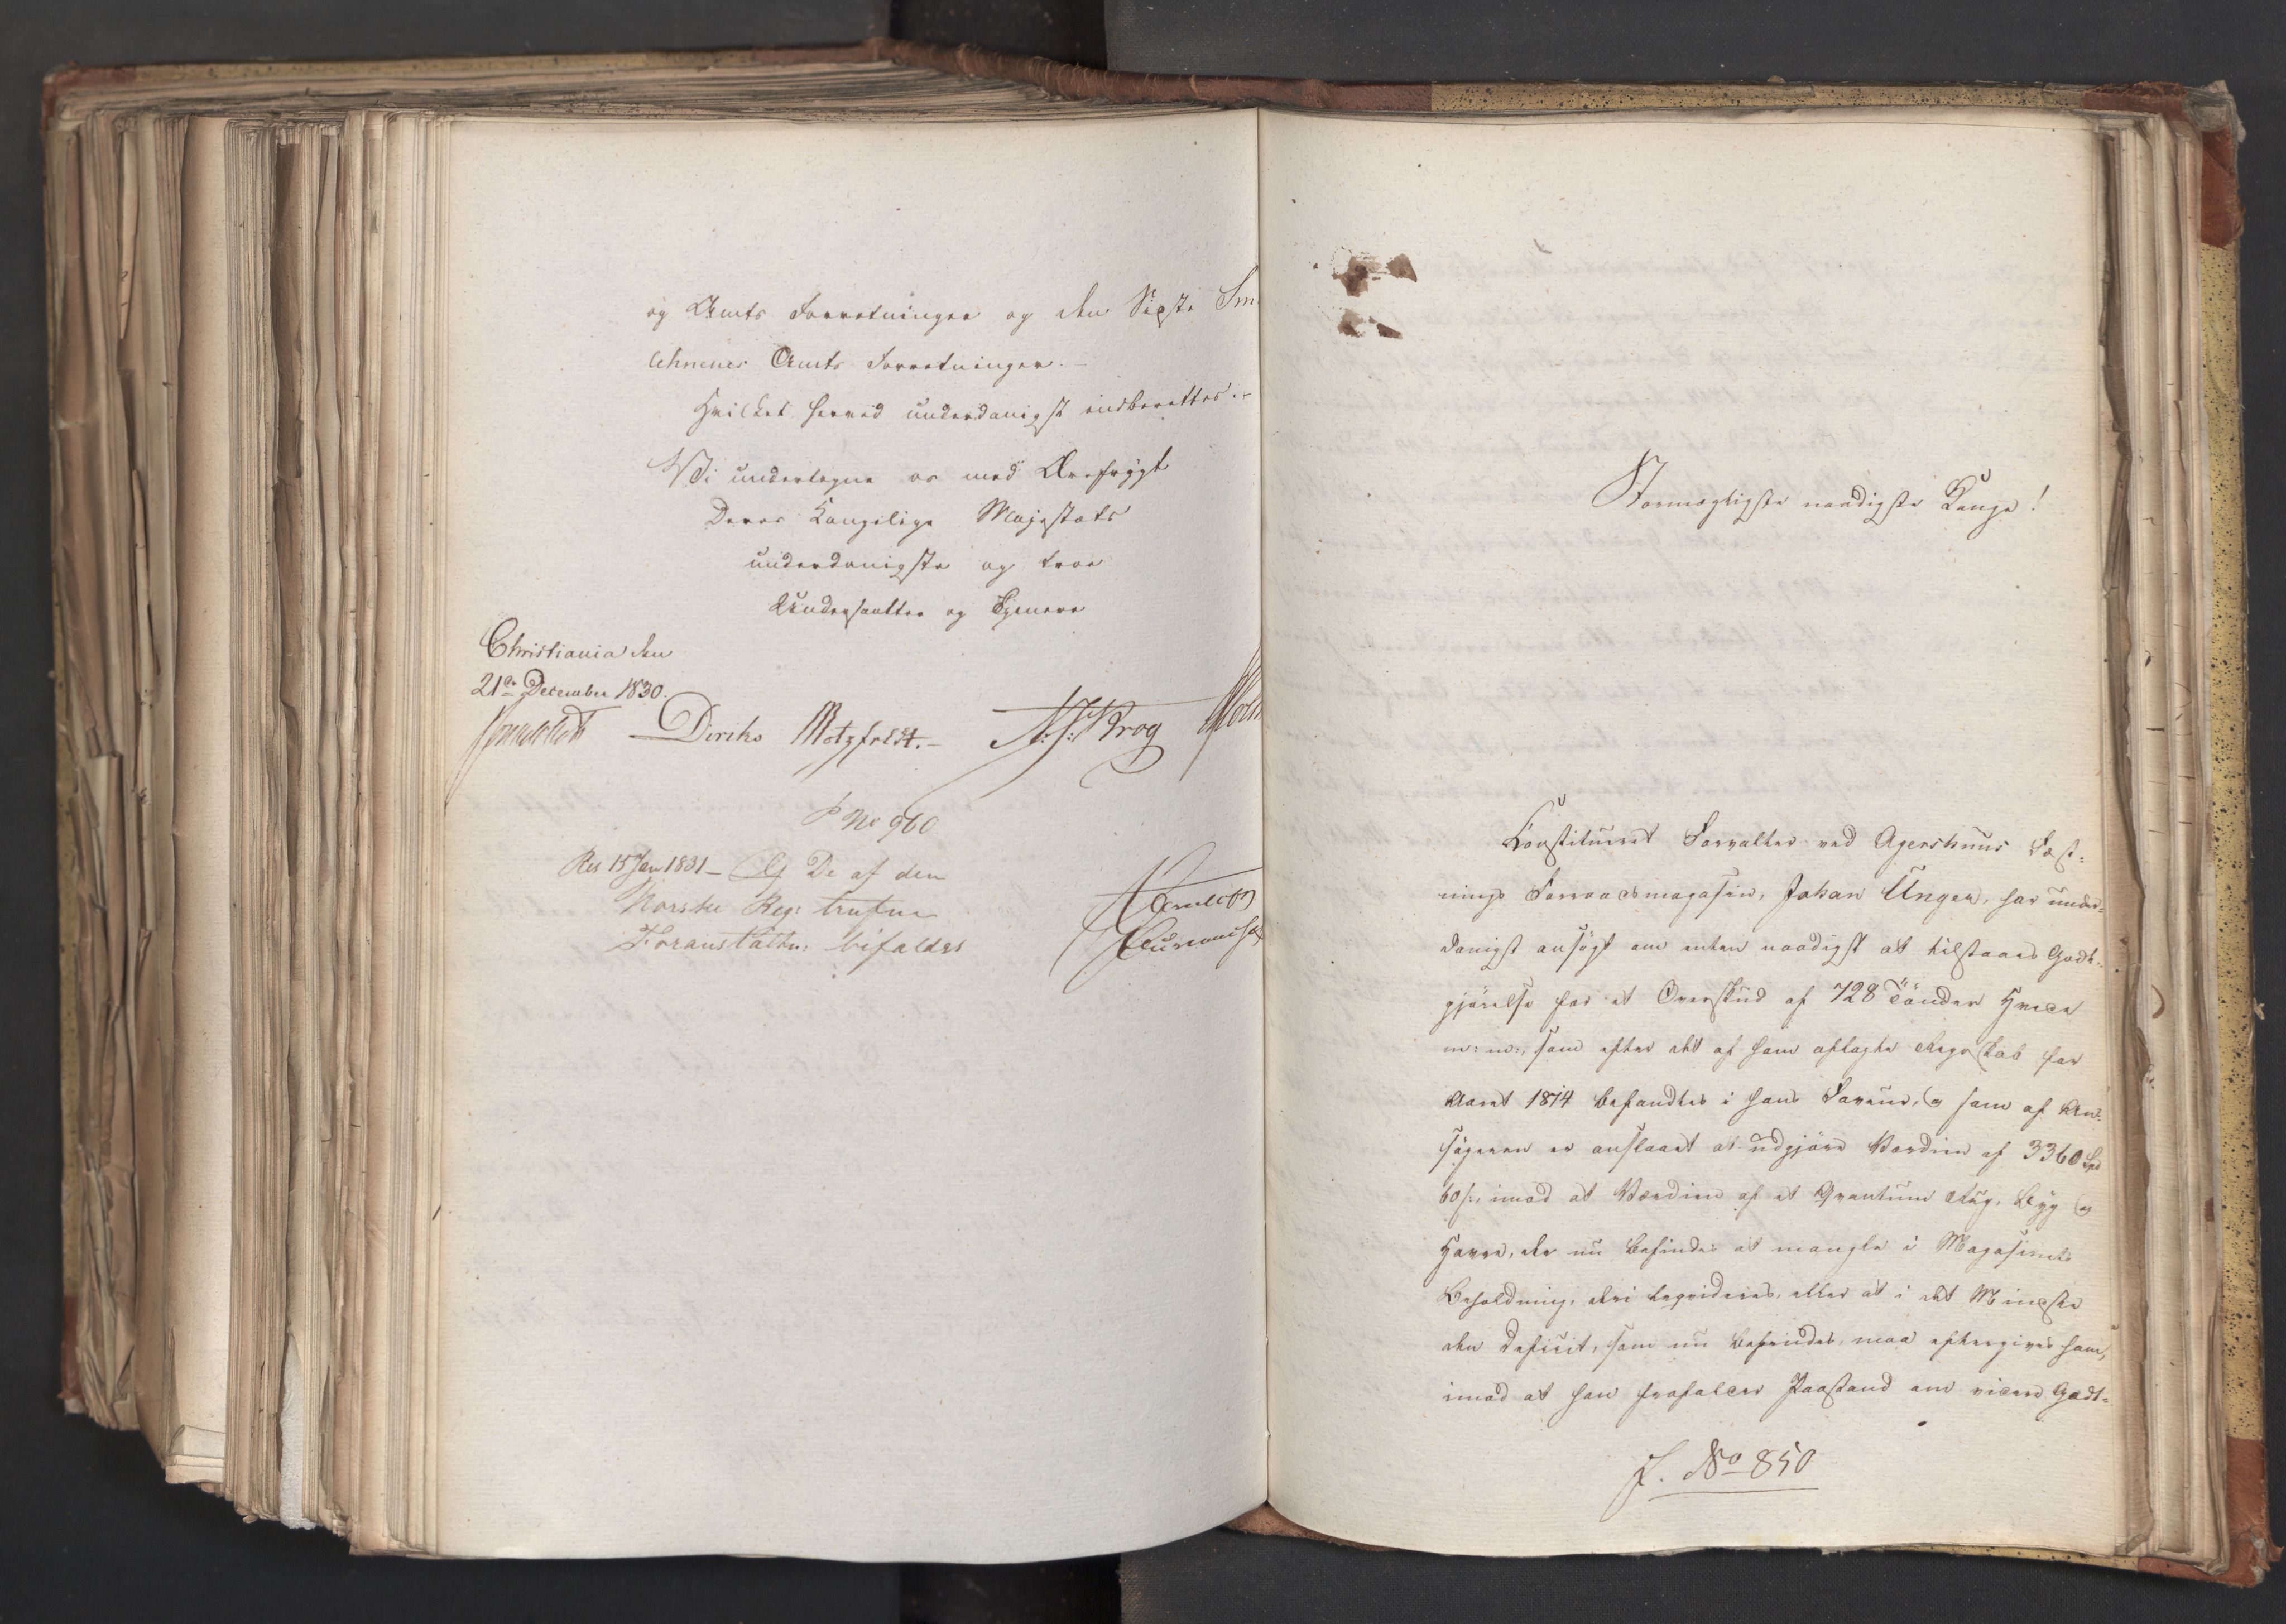 og Amts Forretninger og den Sidste Sm
lehnenes Amts Forretninger.
Hvilket herved underdanigst indberettes.
Vi undertegne os med Ærefrygt
Deres Kongelige Majestæts
underdanigste og troe
Undersaatter og Tjenere
Christiania den
21de December 1830.
Diriks Motzfeldt. N: J: Krog Holst
P No 960
Res 15 Jan 1831 – De af den
Norske Reg: trufne
Foranstaltn: bifaldes
Stormægtigste naadigste Konge!
Constitueret Forvalter ved Agershuus Fæst-
nings Forraadsmagasin, Johan Unger, har under-
danigst ansøgt om enten naadigst at tilstaaes Godt-
gjørelse for et Overskud af 728 Tønder Hvede
m: m:, som efter det af ham aflagte Regnskab for
Aaret 1814 befandtes i hans Værge, og som af An-
søgeren er anslaaet at udgjøre Værdien af 3360 Spd
60 s:, imod at Værdien af et Qvantum Rug, Byg og
Havre, der nu befindes at mangle i Magasinets
Beholdning, deri liqvideres, eller at i det Mindste
den Deficit, som nu befindes, maa eftergives ham,
imod at han frafalder Paastand om videre Godt-
J. No 850